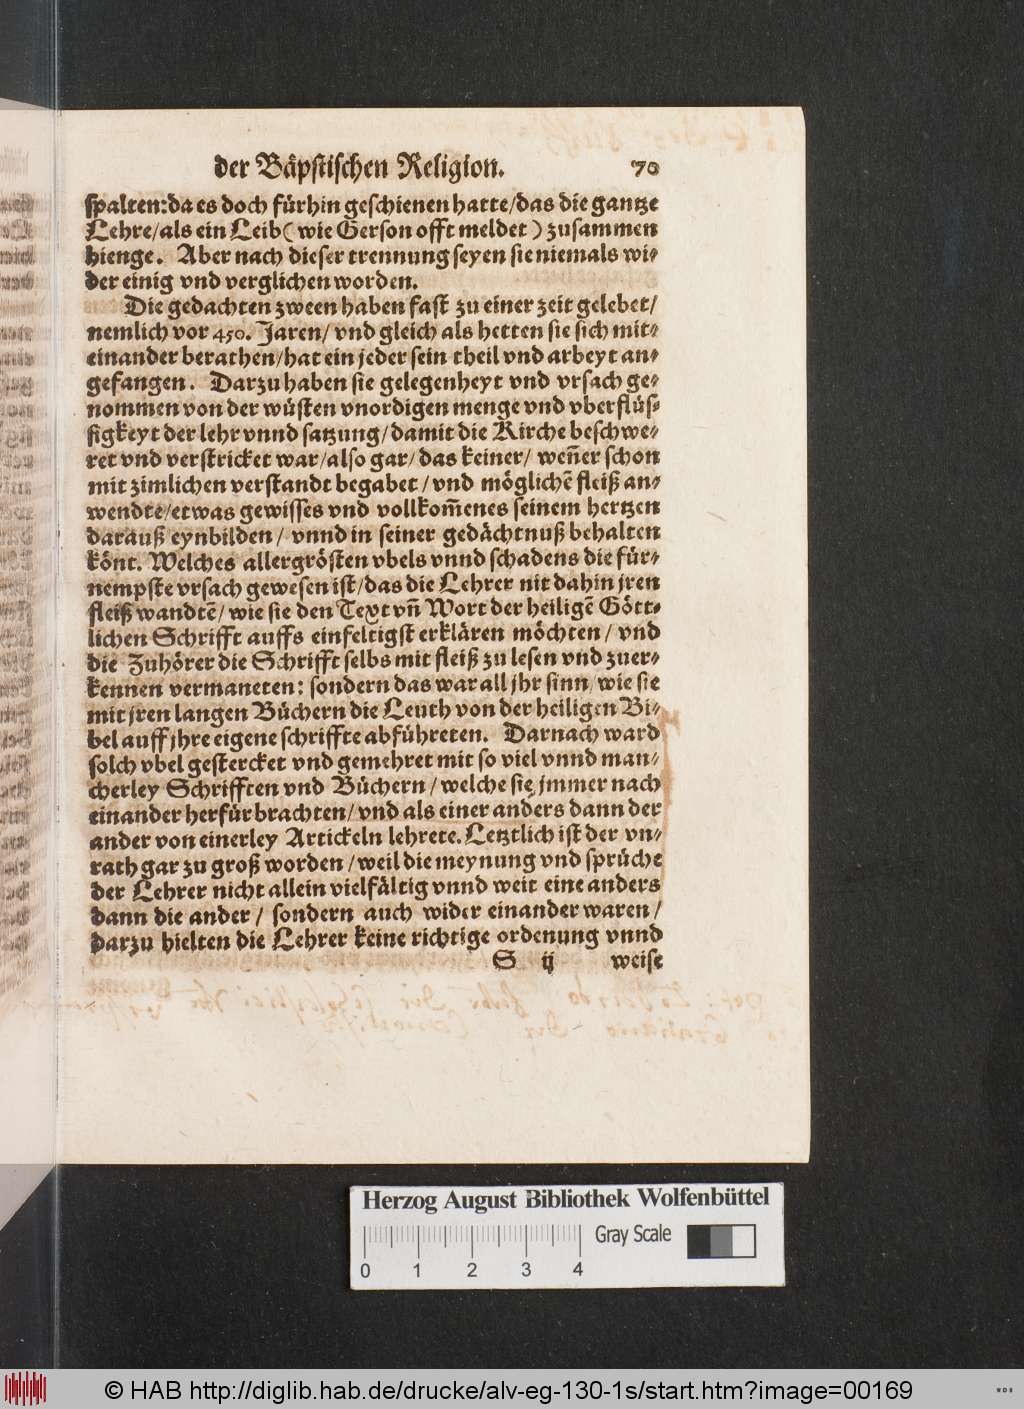 der Bäpstischen Religion. 70
spalten: da es doch fürhin geschienen hatte/das die gantze
Lehre/als ein Leib ( wie Gerson offt meldet ) zusammen
hienge. Aber nach dieser trennung seyen sie niemals wi-
der einig vnd verglichen worden.
Die gedachten zween haben fast zu einer zeit gelebet/
nemlich vor 450. Jaren/ vnd gleich als hetten sie sich mit-
einander berathen/hat ein jeder sein theil vnd arbeyt an-
gefangen. Darzu haben sie gelegenheyt vnd vrsach ge-
nommen von der wüsten vnordigen menge vnd vberflüs-
sigkeyt der lehr vnnd satzung/damit die Kirche beschwe-
ret vnd verstricket war/also gar/das keiner/ weñer schon
mit zimlichen verstandt begabet/vnd möglichẽ fleiß an-
wendte/etwas gewisses vnd vollkom̃enes seinem hertzen
darauß eynbilden/ vnnd in seiner gedächtnuß behalten
könt. Welches allergrösten vbels vnnd schadens die für-
nempste vrsach gewesen ist/das die Lehrer nit dahin jren
fleiß wandtẽ/wie sie den Text vñ Wort der heiligẽ Gött-
lichen Schrifft auffs einfeltigst erklären möchten/ vnd
die Zuhörer die Schrifft selbs mit fleiß zu lesen vnd zuer-
kennen vermaneten: sondern das war all jhr sinn/wie sie
mit jren langen Büchern die Leuth von der heiligen Bi-
bel auff jhre eigene schriffte abführeten. Darnach ward
solch vbel gestercket vnd gemehret mit so viel vnnd man-
cherley Schrifften vnd Büchern/welche sie jmmer nach
einander herfür brachten/vnd als einer anders dann der
ander von einerley Artickeln lehrete. Letztlich ist der vn-
rath gar zu groß worden/weil die meynung vnd sprüche
der Lehrer nicht allein vielfältig vnnd weit eine anders
dann die ander/ sondern auch wider einander waren/
darzu hielten die Lehrer keine richtige ordenung vnnd
S ij weise
Herzog August Bibliothek Wolfenbüttel
Gray Scale
0 1 2 3 4
© HAB http://diglib.hab.de/drucke/alv-eg-130-1s/start.htm?image=00169